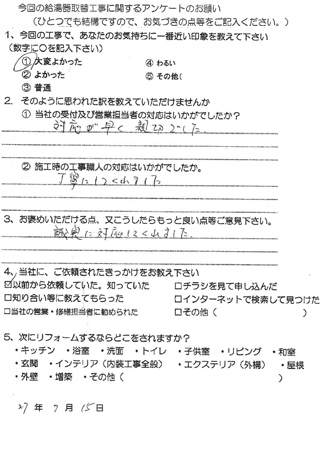 今回の給湯器取替工事に関するアンケートのお願い
(ひとつでも結構ですので、お気づきの点等をご記入ください。)
1、今回の工事で、あなたのお気持ちに一番近い印象を教えて下さい
(数字に○を記入下さい)
① 大変よかった ④ わるい
② よかった ⑤ その他(
③ 普通
2. そのように思われた訳を教えていただけませんか
① 当社の受付及び営業担当者の対応はいかがでしたか?
対応が早く 親切でした
② 施工時の工事職人の対応はいかがでしたか。
丁寧にしてくれました
3、お褒めいただける点、又こうしたらもっと良い点等ご意見下さい。
誠実に対応してくれました.
4、当社に、ご依頼されたきっかけをお教え下さい
☑以前から依頼していた。知っていた □チラシを見て申し込んだ
□知り合い等に教えてもらった □インターネットで検索して見つけた
□当社の営業・修繕担当者に勧められた □その他( )
5、次にリフォームするならどこをされますか?
・キッチン ・浴室 ・洗面 ・トイレ ・子供室 ・リビング ・和室
・玄関 ・インテリア(内装工事全般) ・エクステリア(外構) ・屋根
・外壁 ・増築 ・その他( )
27 年 7 月 15 日